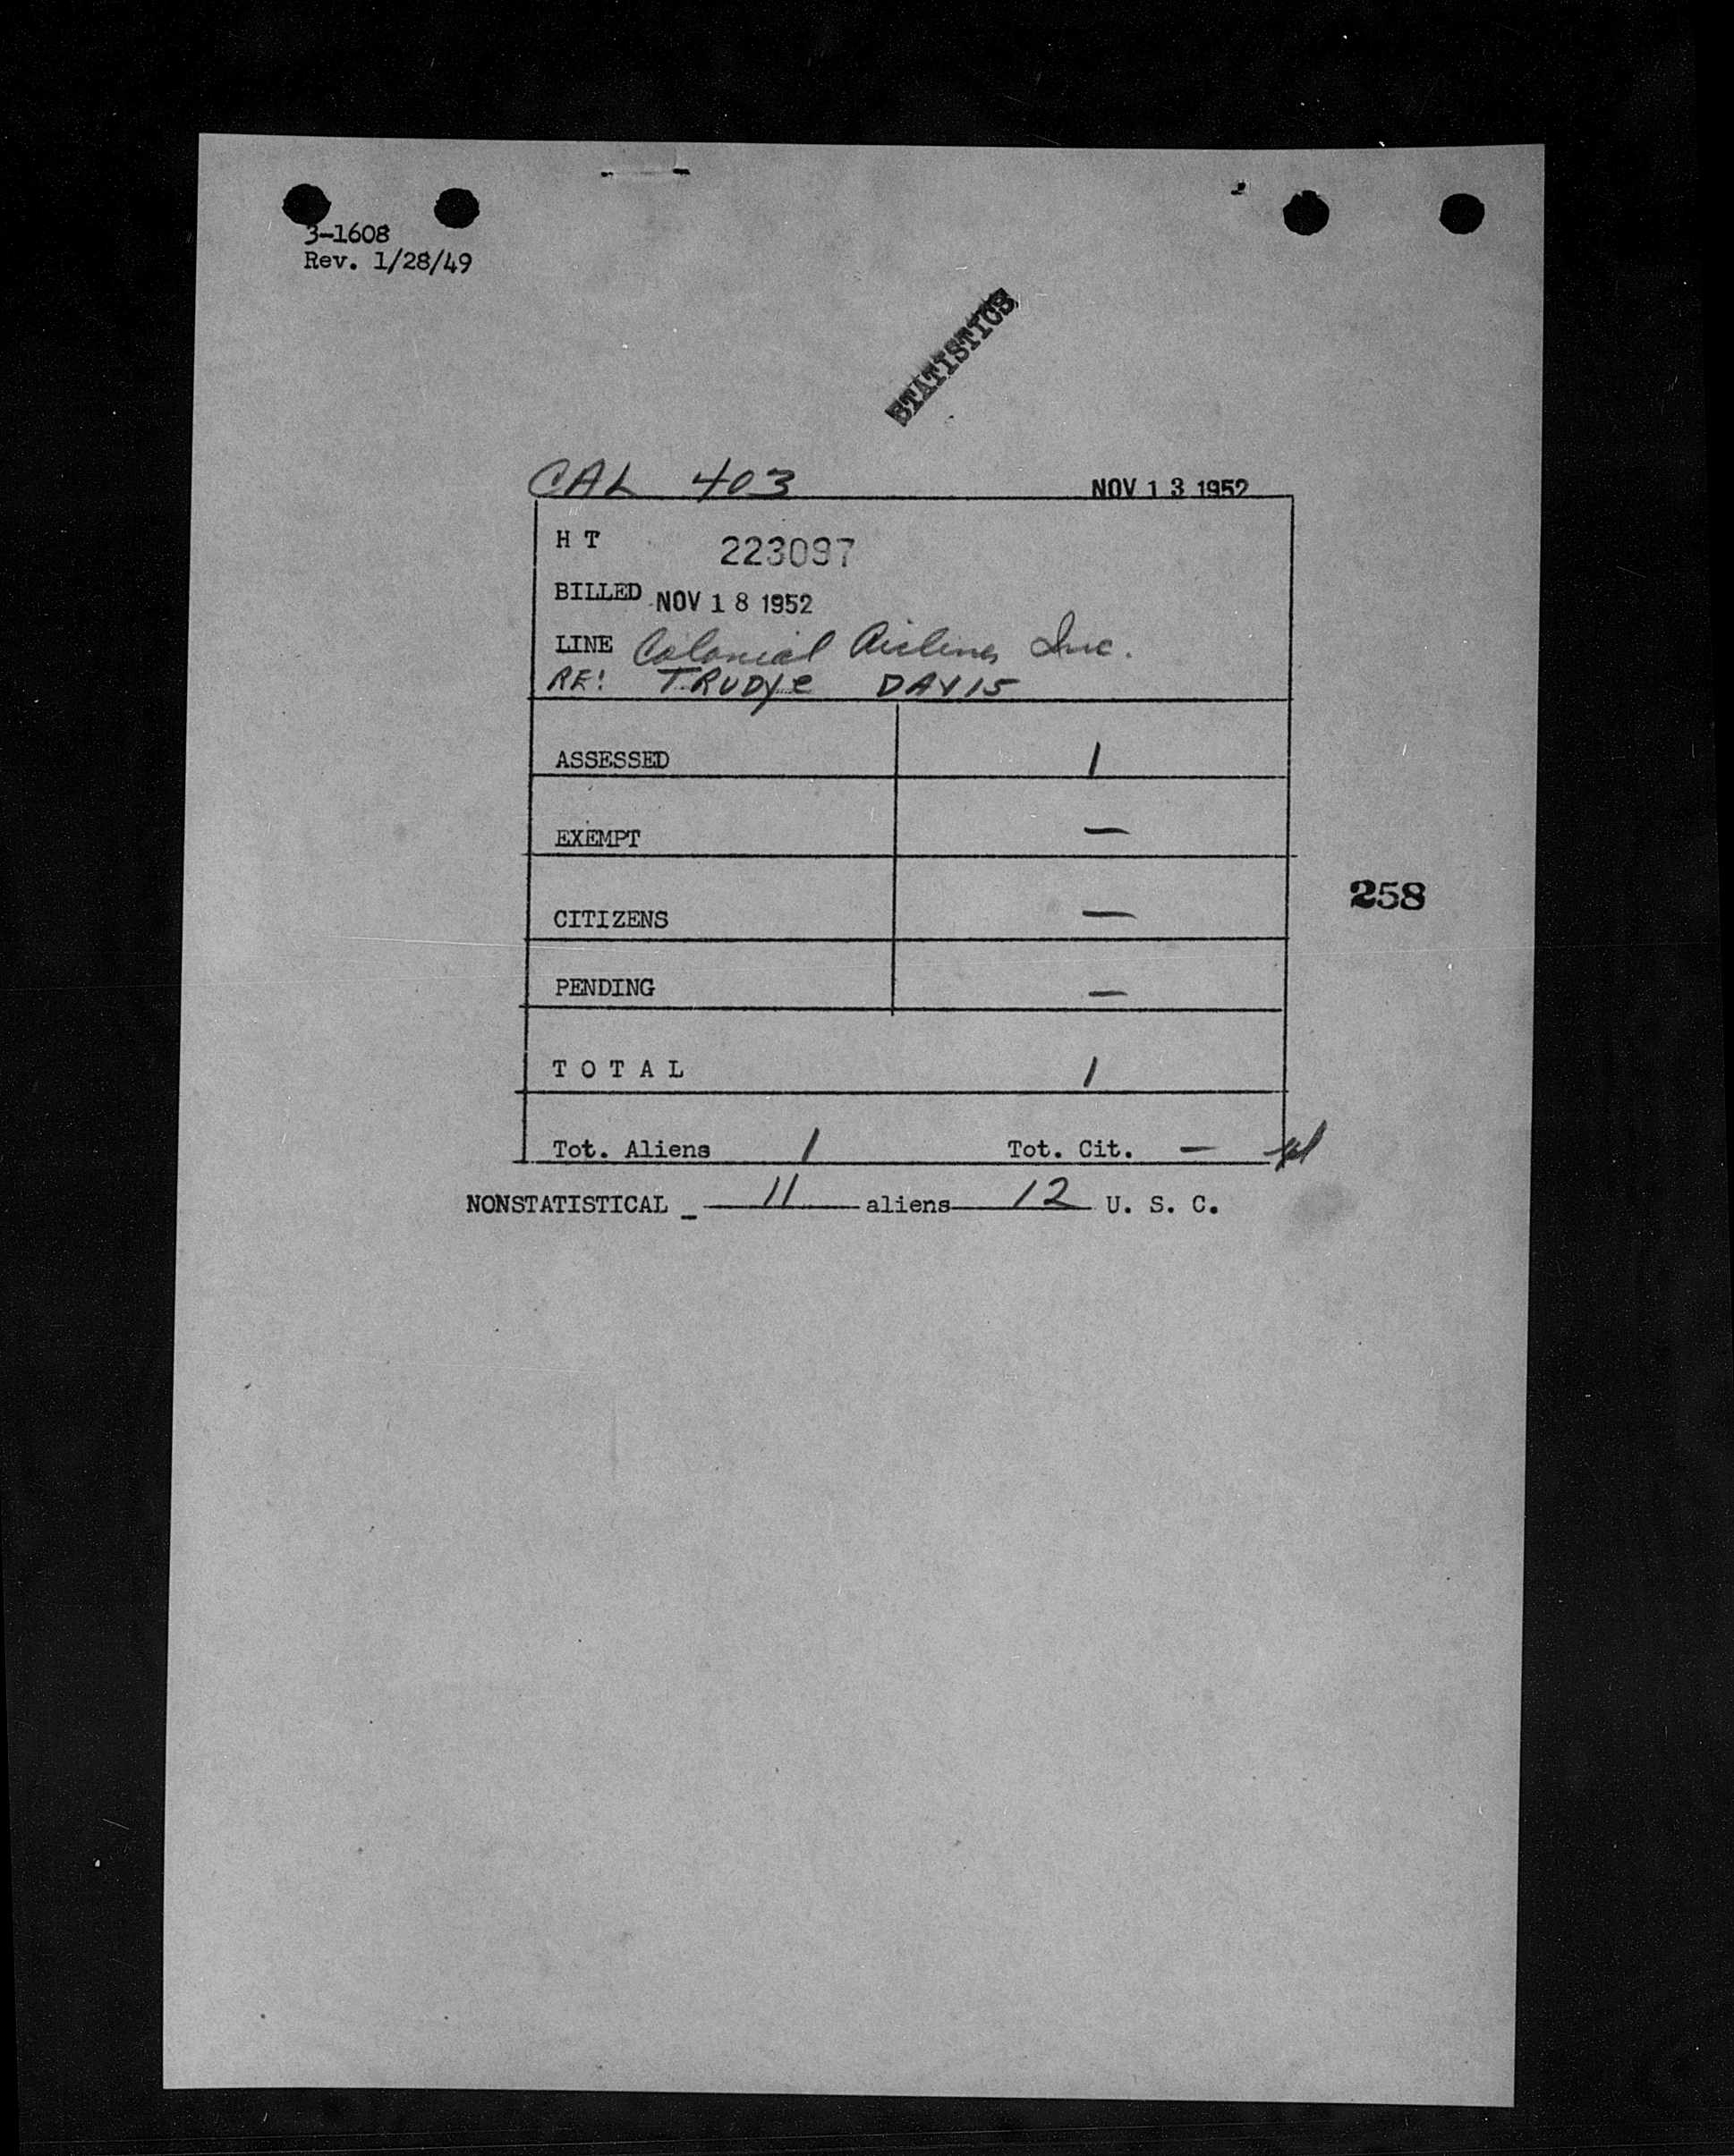 3-1608
Rev. 1/28/49
STATISTICS
CAL 403 NOV 13 1952
H T 223097
BILLED NOV 18 1952
LINE Colonial Airlines Inc.
RE: TRUDYE DAVIS
ASSESSED 1
EXEMPT —
CITIZENS —
258
PENDING —
T O T A L 1
Tot. Aliens 1 Tot. Cit. —
NONSTATISTICAL - 11 aliens 12 U. S. C.